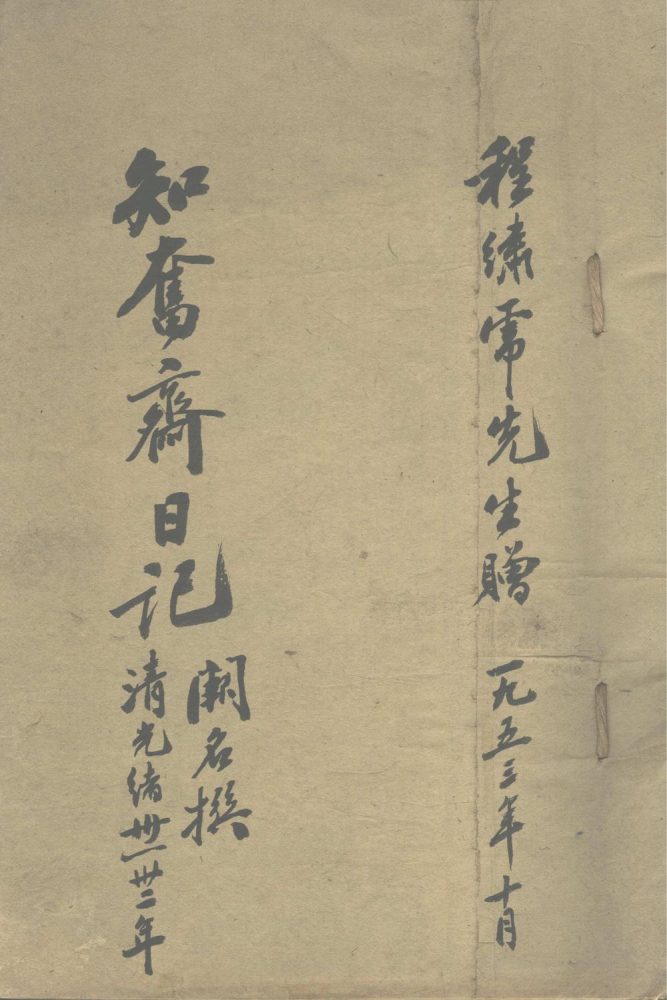 程繡常先生贈 一九五三年十月
知奮齋日記
闕名撰
清光緒卅一卅二年